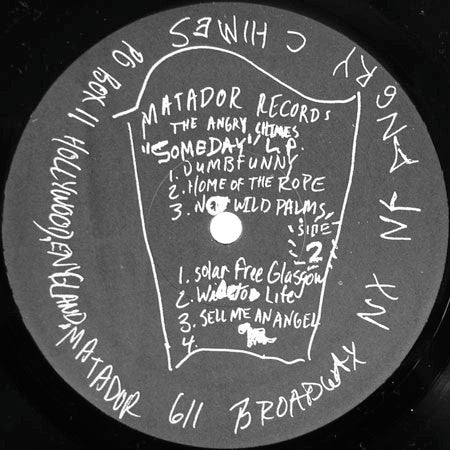 MATADOR RECORDS
THE ANGRY CHIMES
"SOMEDAY" L.P.
1. DUMBFUNNY
2. HOME OF THE ROPE
3. NOT WILD PALMS
"SIDE
2"
1. Solar Free Glasgow
2. Life
3. SELL ME AN ANGEL
4.
ANGRY CHIMES
PO BOX 11 HOLLYWOOD, ENGLAND, MATADOR 611 BROADWAY NX NY